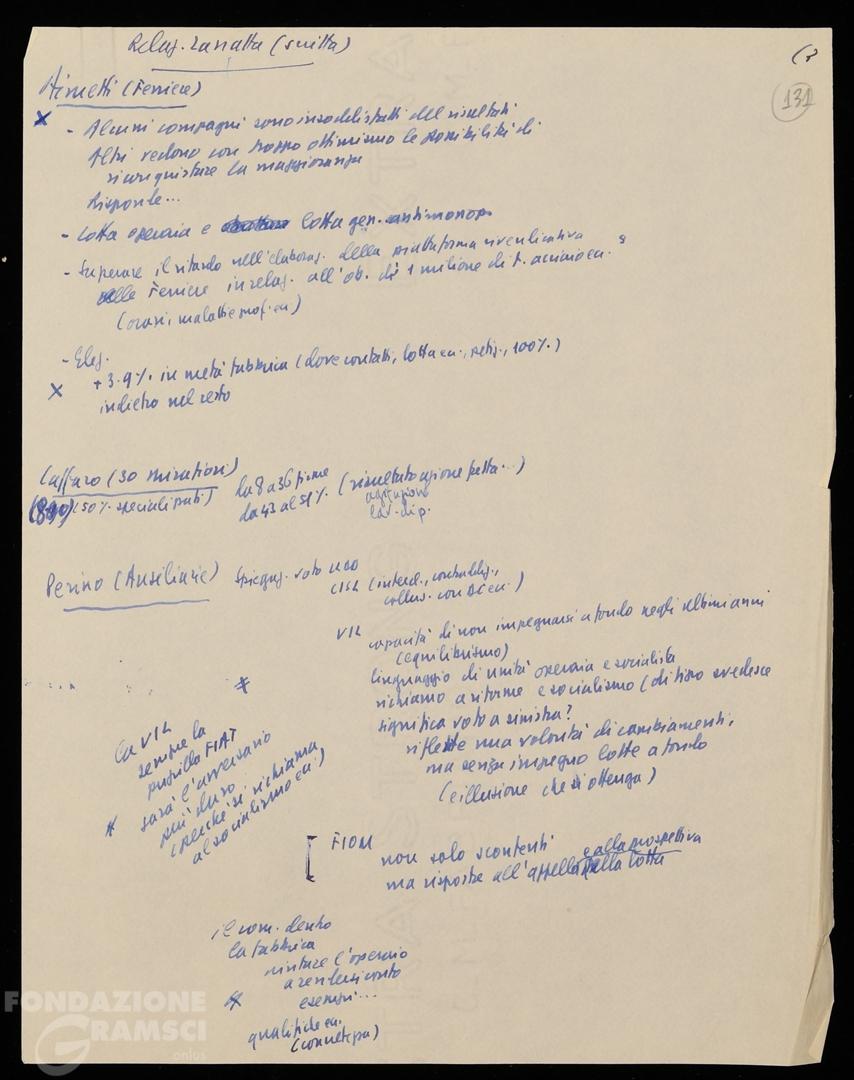 Relaz. Zanatta (scritta)
(3
131
Aimetti (Ferriere)
x - Alcuni compagni sono insoddisfatti del risultati
Altri vedono con troppo ottimismo le possibilità di
riconquistare la maggioranza
Risposte...
- Lotta operaia e lotta gen. antimonop.
- Superare il ritardo nell'elaboraz. della piattaforma rivendicativa
delle Ferriere in relaz. all'ob. di 1 milione di t. acciaio ecc.
(orari, malattie prof. ecc)
- Elez.
x + 3.9% in metà fabbrica (dove contatti, lotta ecc., 100%)
indietro nel resto
Caffaro (30 minatori)
(50% specializzati)
da 8 a 36 firme
da 43 al 51% (risultato azione fatta...)
agitazione
lav. dip.
Perino (Ausiliarie) Spiegaz. voto
CISL (interel.,
colleg. con DC ecc.)
UIL capacità di non impegnarsi a fondo negli ultimi anni
(equilibrismo)
linguaggio di unità operaia e socialista
richiamo a riforme e socialismo (di tipo svedese
significa voto a sinistra?
riflette una volontà di cambiamenti,
ma senza impegno lotte a fondo
(e illusione che si ottenga)
La UIL
sempre la
pupilla FIAT
sarà l'avversario
più duro
(perché si richiama
al socialismo ecc.)
FIOM
non solo scontenti
ma risposte all'appello alla lotta
e alla prospettiva
il com. dentro
la fabbrica
aiutare l'operaio
a rendersi conto
esempi...
qualifiche ecc.
FONDAZIONE
GRAMSCI
onlus